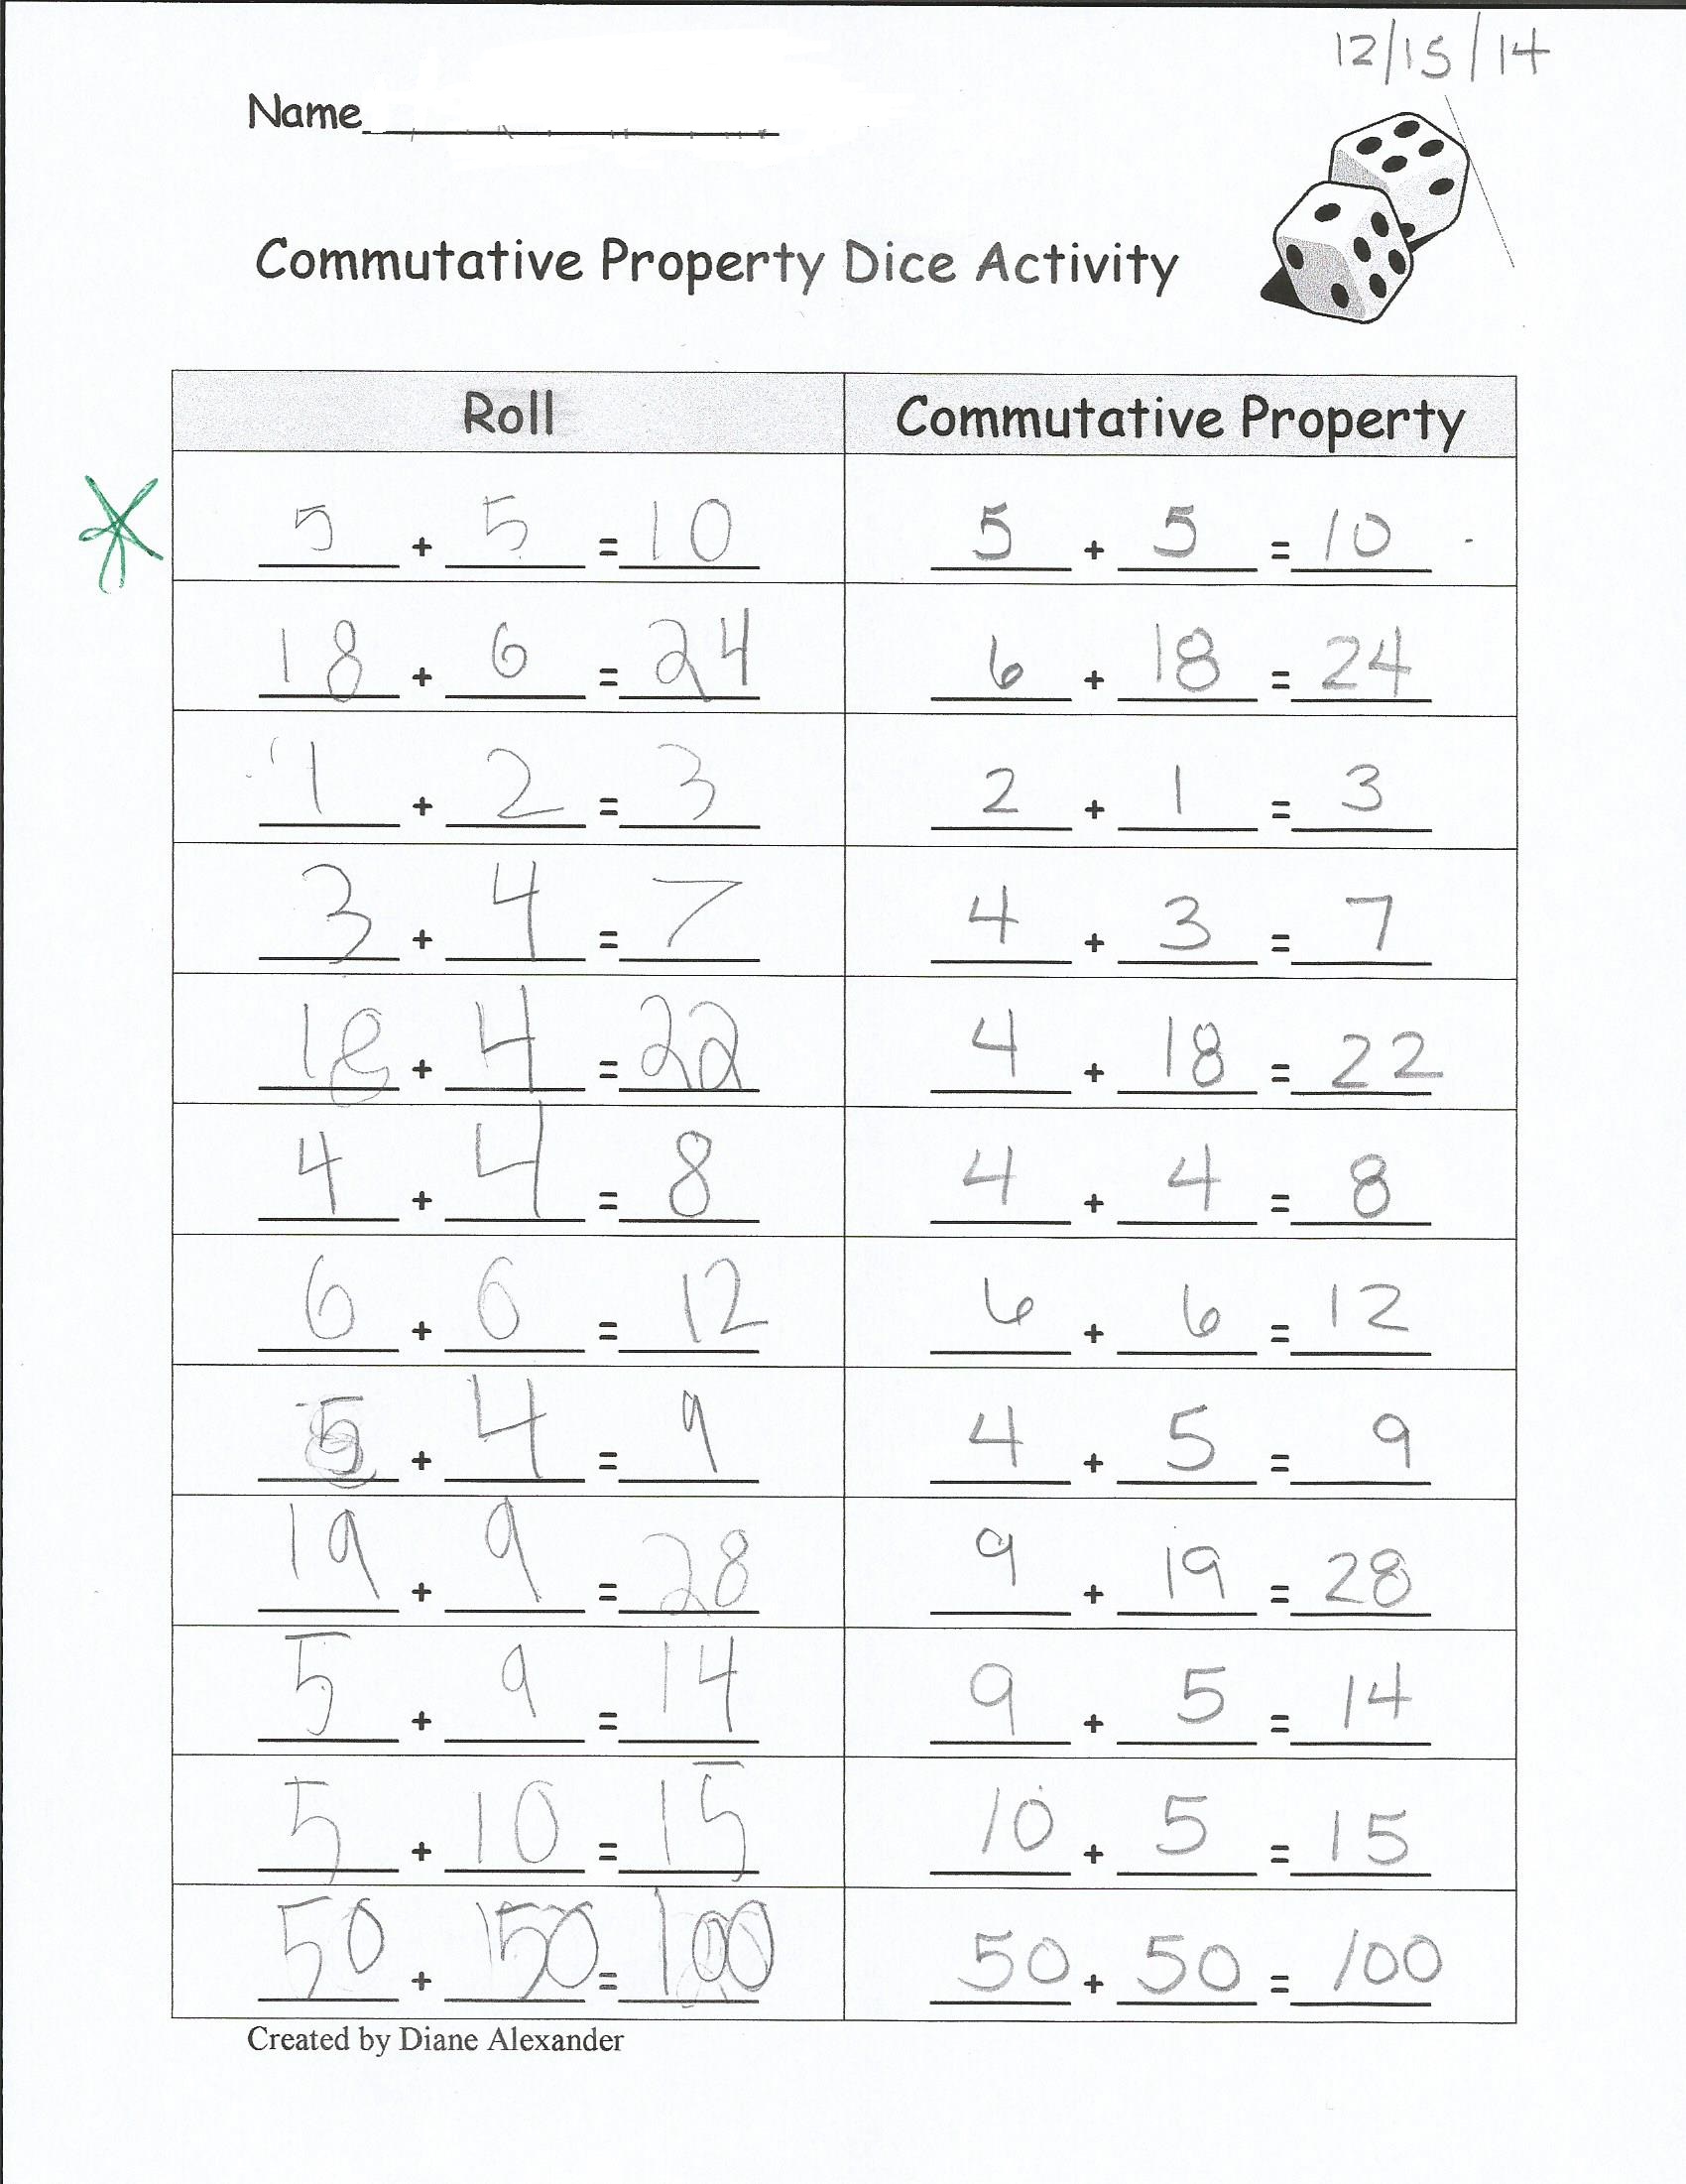 12/15/14
Name
Commutative Property Dice Activity
Roll Commutative Property
5 + 5 = 10 5 + 5 = 10
18 + 6 = 24 6 + 18 = 24
1 + 2 = 3 2 + 1 = 3
3 + 4 = 7 4 + 3 = 7
18 + 4 = 22 4 + 18 = 22
4 + 4 = 8 4 + 4 = 8
6 + 6 = 12 6 + 6 = 12
5 + 4 = 9 4 + 5 = 9
19 + 9 = 28 9 + 19 = 28
5 + 9 = 14 9 + 5 = 14
5 + 10 = 15 10 + 5 = 15
50 + 50 = 100 50 + 50 = 100
Created by Diane Alexander